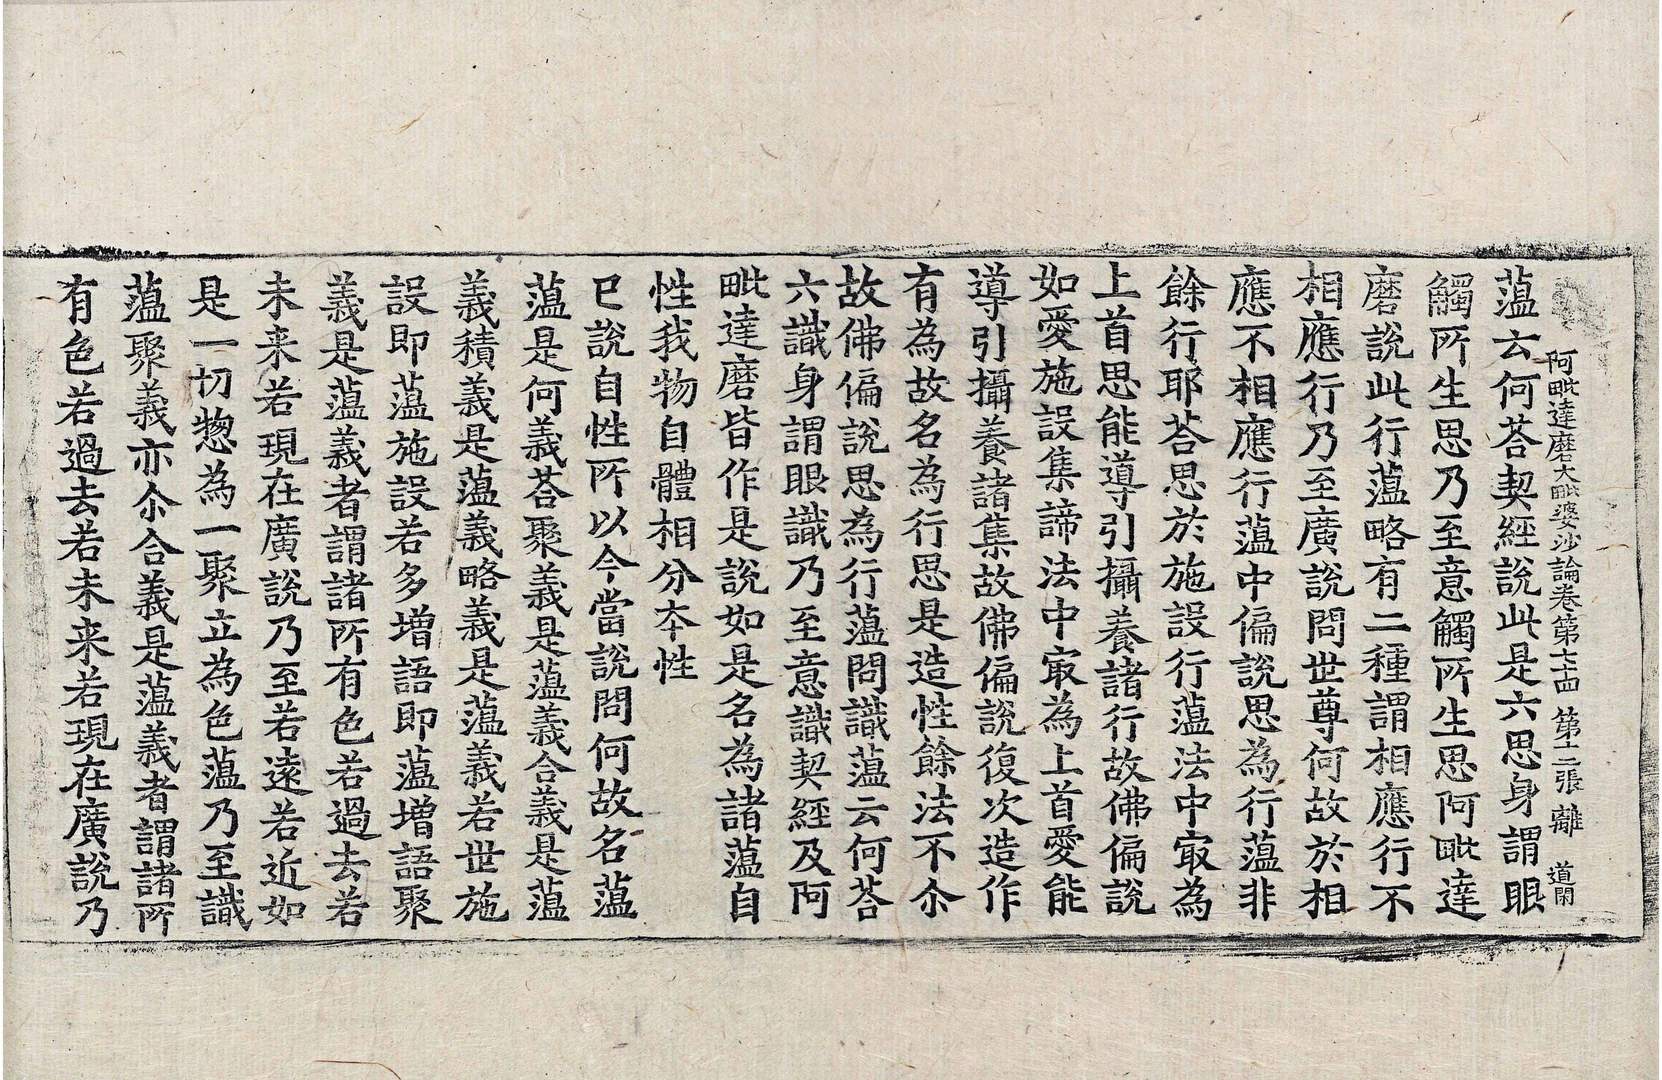 阿毗達磨大毗婆沙論卷第七十四 第十二張 離 道閑
蕰云何荅契經說此是六思身謂眼
觸所生思乃至意觸所生思阿毗達
磨說此行蕰略有二種謂相應行不
相應行乃至廣說問世尊何故於相
應不相應行蕰中偏說思為行蕰非
餘行耶荅思於施設行蕰法中㝡為
上首思能導引攝養諸行故佛偏說
如愛施設集諦法中㝡為上首愛能
導引攝養諸集故佛偏說復次造作
有為故名為行思是造性餘法不尒
故佛偏說思為行蕰問識蕰云何荅
六識身謂眼識乃至意識契經及阿
毗達磨皆作是說如是名為諸蕰自
性我物自體相分夲性
已說自性所以今當說問何故名蕰
蕰是何義荅聚義是蕰義合義是蕰
義積義是蕰義略義是蕰義若世施
設即蕰施設若多增語即蕰增語聚
義是蕰義者謂諸所有色若過去若
未来若現在廣說乃至若遠若近如
是一切惣為一聚立為色蕰乃至識
蕰聚義亦尒合義是蕰義者謂諸所
有色若過去若未来若現在廣說乃